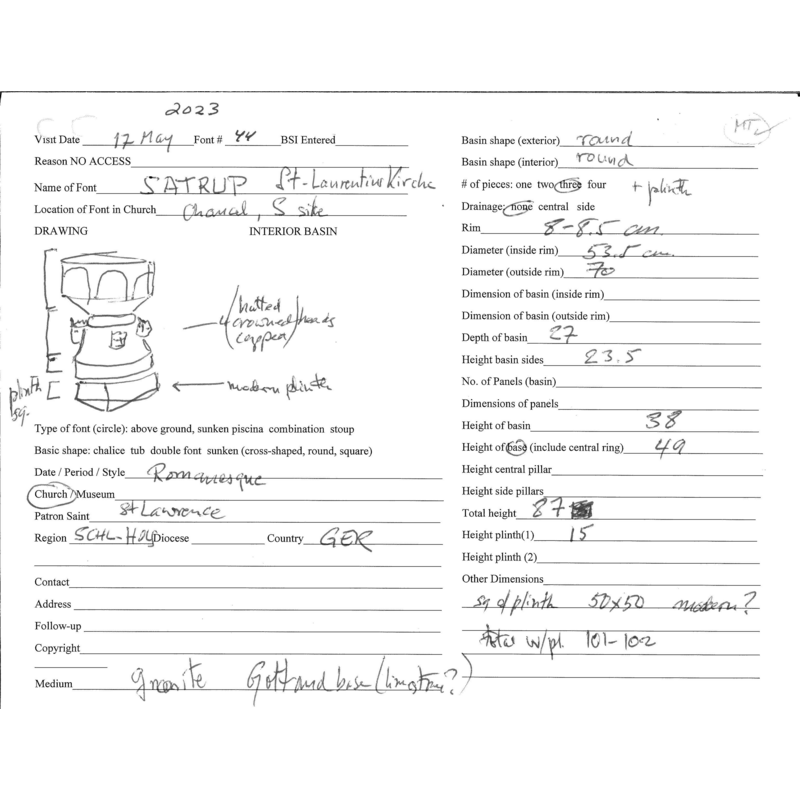 2023
Visit Date 17 May Font # 44 BSI Entered
Reason NO ACCESS
Name of Font SATRUP St-Laurentius Kirche
Location of Font in Church Chancel, S side
DRAWING INTERIOR BASIN
4 (hatted crowned capped) heads
plinth sq.
modern plinth
Type of font (circle): above ground, sunken piscina combination stoup
Basic shape: chalice tub double font sunken (cross-shaped, round, square)
Date / Period / Style Romanesque
Church / Museum
Patron Saint St Lawrence
Region SCHL-HOL Diocese Country GER
Contact
Address
Follow-up
Copyright
Medium granite Gotland base (limestone?)
MT
Basin shape (exterior) round
Basin shape (interior) round
# of pieces: one two three four + plinth
Drainage: none central side
Rim 8-8.5 cm.
Diameter (inside rim) 53.5 cm.
Diameter (outside rim) 70
Dimension of basin (inside rim)
Dimension of basin (outside rim)
Depth of basin 27
Height basin sides 23.5
No. of Panels (basin)
Dimensions of panels
Height of basin 38
Height of base (include central ring) 49
Height central pillar
Height side pillars
Total height 87
Height plinth(1) 15
Height plinth (2)
Other Dimensions
sq of plinth 50x50 modern?
total w/pl. 101-102